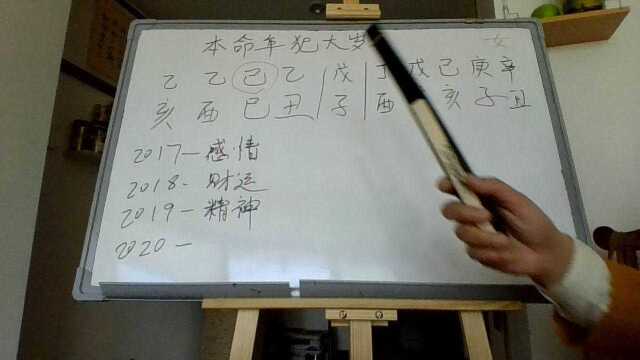 本命年犯太岁 女
乙 乙 己 乙 戊 丁 戊 己 庚 辛
亥 酉 巳 丑 子 酉 亥 子 丑
2017-感情
2018-财运
2019-精神
2020-